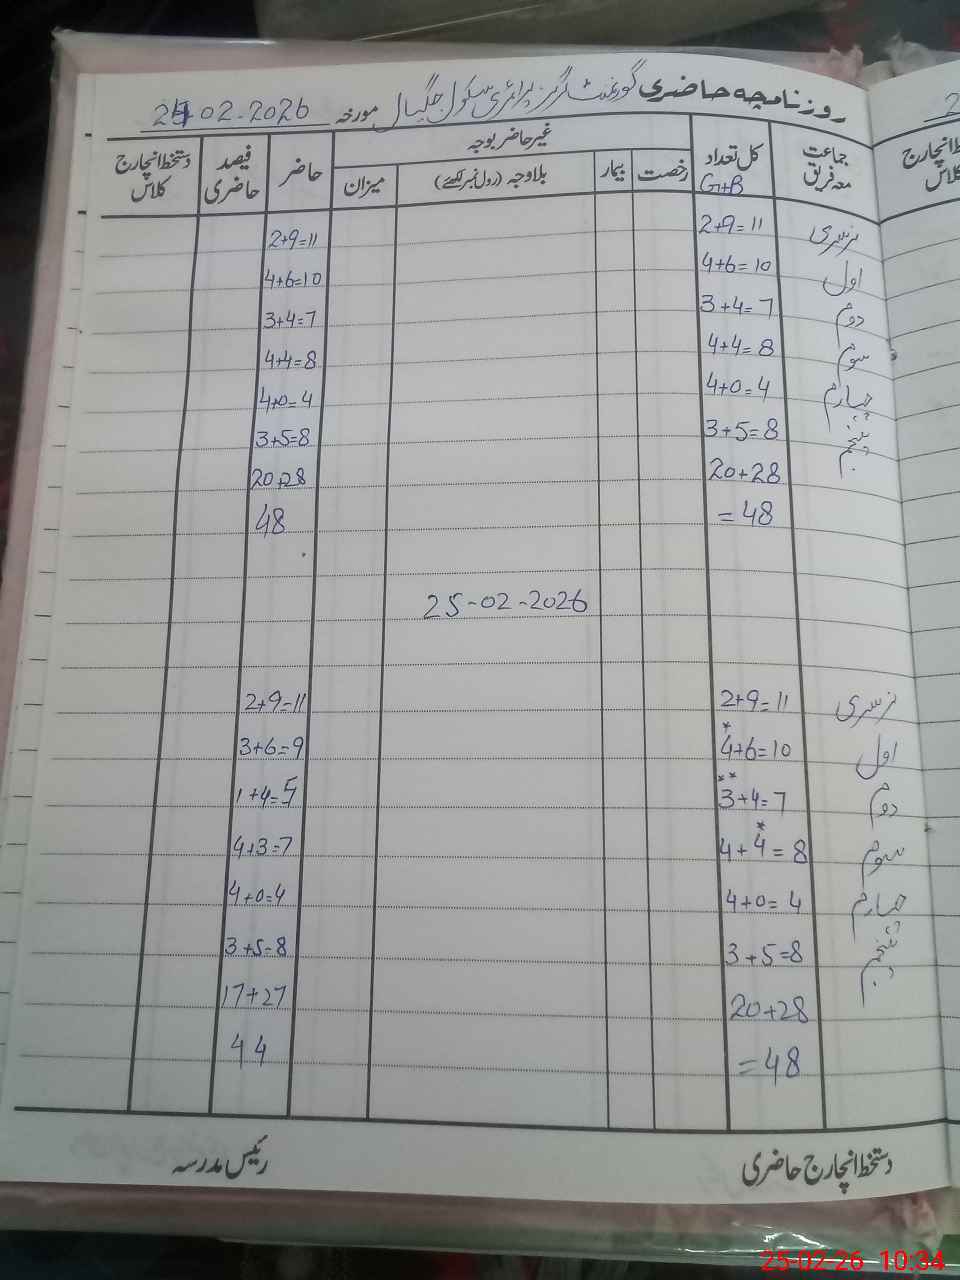 روزنامچہ حاضری گورنمنٹ گرلز پرائمری سکول جگیال مورخہ 24.02.2026
جماعت معہ فریق کل تعداد G+B غیر حاضر بوجہ حاضر فیصد حاضری دستخط انچارج کلاس
رخصت بیمار بلاوجہ (رول نمبر لکھئے) میزان
نرسری 2+9=11 2+9=11
اول 4+6=10 4+6=10
دوم 3+4=7 3+4=7
سوم 4+4=8 4+4=8
چہارم 4+0=4 4+0=4
پنجم 3+5=8 3+5=8
20+28 20+28
=48 48
25-02-2026
نرسری 2+9=11 2+9=11
اول 4+6=10 3+6=9
دوم 3+4=7 1+4=5
سوم 4+4=8 4+3=7
چہارم 4+0=4 4+0=4
پنجم 3+5=8 3+5=8
20+28 17+27
=48 44
دستخط انچارج حاضری رئیس مدرسہ
25-02-26 10:34